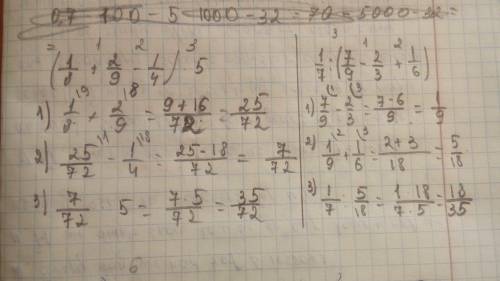 0,7 · 100 - 5 · 1000 - 32 = 70 - 5000 - 32 =
= (1/8 + 2/9 - 1/4) · 5
1) 1/8 + 2/9 = 9+16/72 = 25/72
2) 25/72 - 1/4 = 25-18/72 = 7/72
3) 7/72 5 = 7·5/72 = 35/72
1/7 : (7/9 - 2/3 + 1/6)
1) 7/9 - 2/3 = 7-6/9 = 1/9
2) 1/9 + 1/6 = 2+3/18 = 5/18
3) 1/7 : 5/18 = 1·18/7·5 = 18/35
6